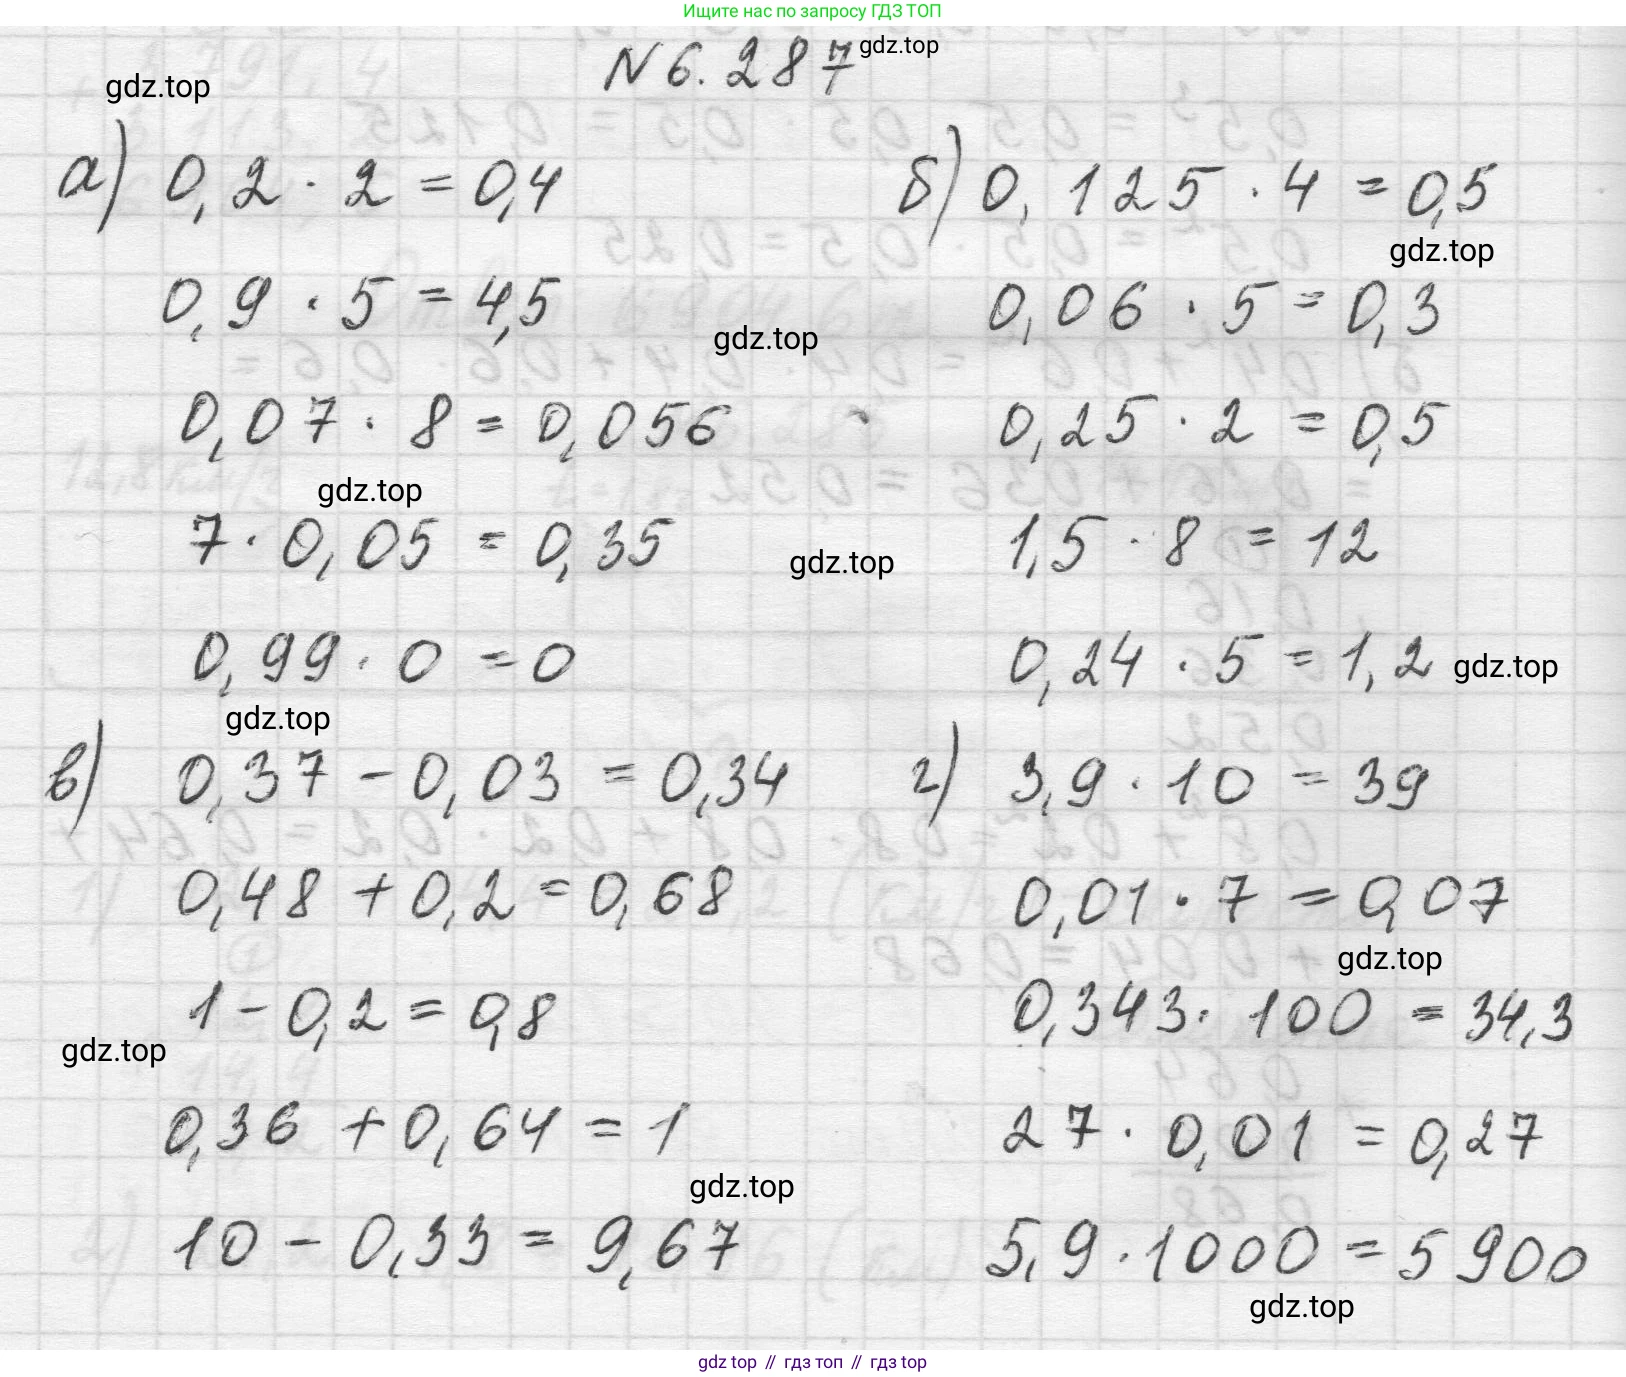 Ищите нас по запросу ГДЗ ТОП
N 6.287 gdz.top
gdz.top
а) 0,2 · 2 = 0,4
0,9 · 5 = 4,5
gdz.top
0,07 · 8 = 0,056
gdz.top
7 · 0,05 = 0,35
gdz.top
0,99 · 0 = 0
gdz.top
б) 0,125 · 4 = 0,5
gdz.top
0,06 · 5 = 0,3
0,25 · 2 = 0,5
1,5 · 8 = 12
0,24 · 5 = 1,2 gdz.top
в) 0,37 - 0,03 = 0,34
0,48 + 0,2 = 0,68
1 - 0,2 = 0,8
gdz.top
0,36 + 0,64 = 1
gdz.top
10 - 0,33 = 9,67
г) 3,9 · 10 = 39
0,01 · 7 = 0,07
gdz.top
0,343 · 100 = 34,3
27 · 0,01 = 0,27
5,9 · 1000 = 5900
gdz.top
gdz top // гдз топ // гдз top